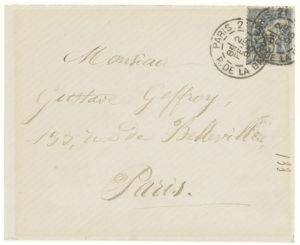 PARIS 2
R. DE LA
Monsieur
Gustave Geffroy,
133, rue de Belleville,
Paris.
133